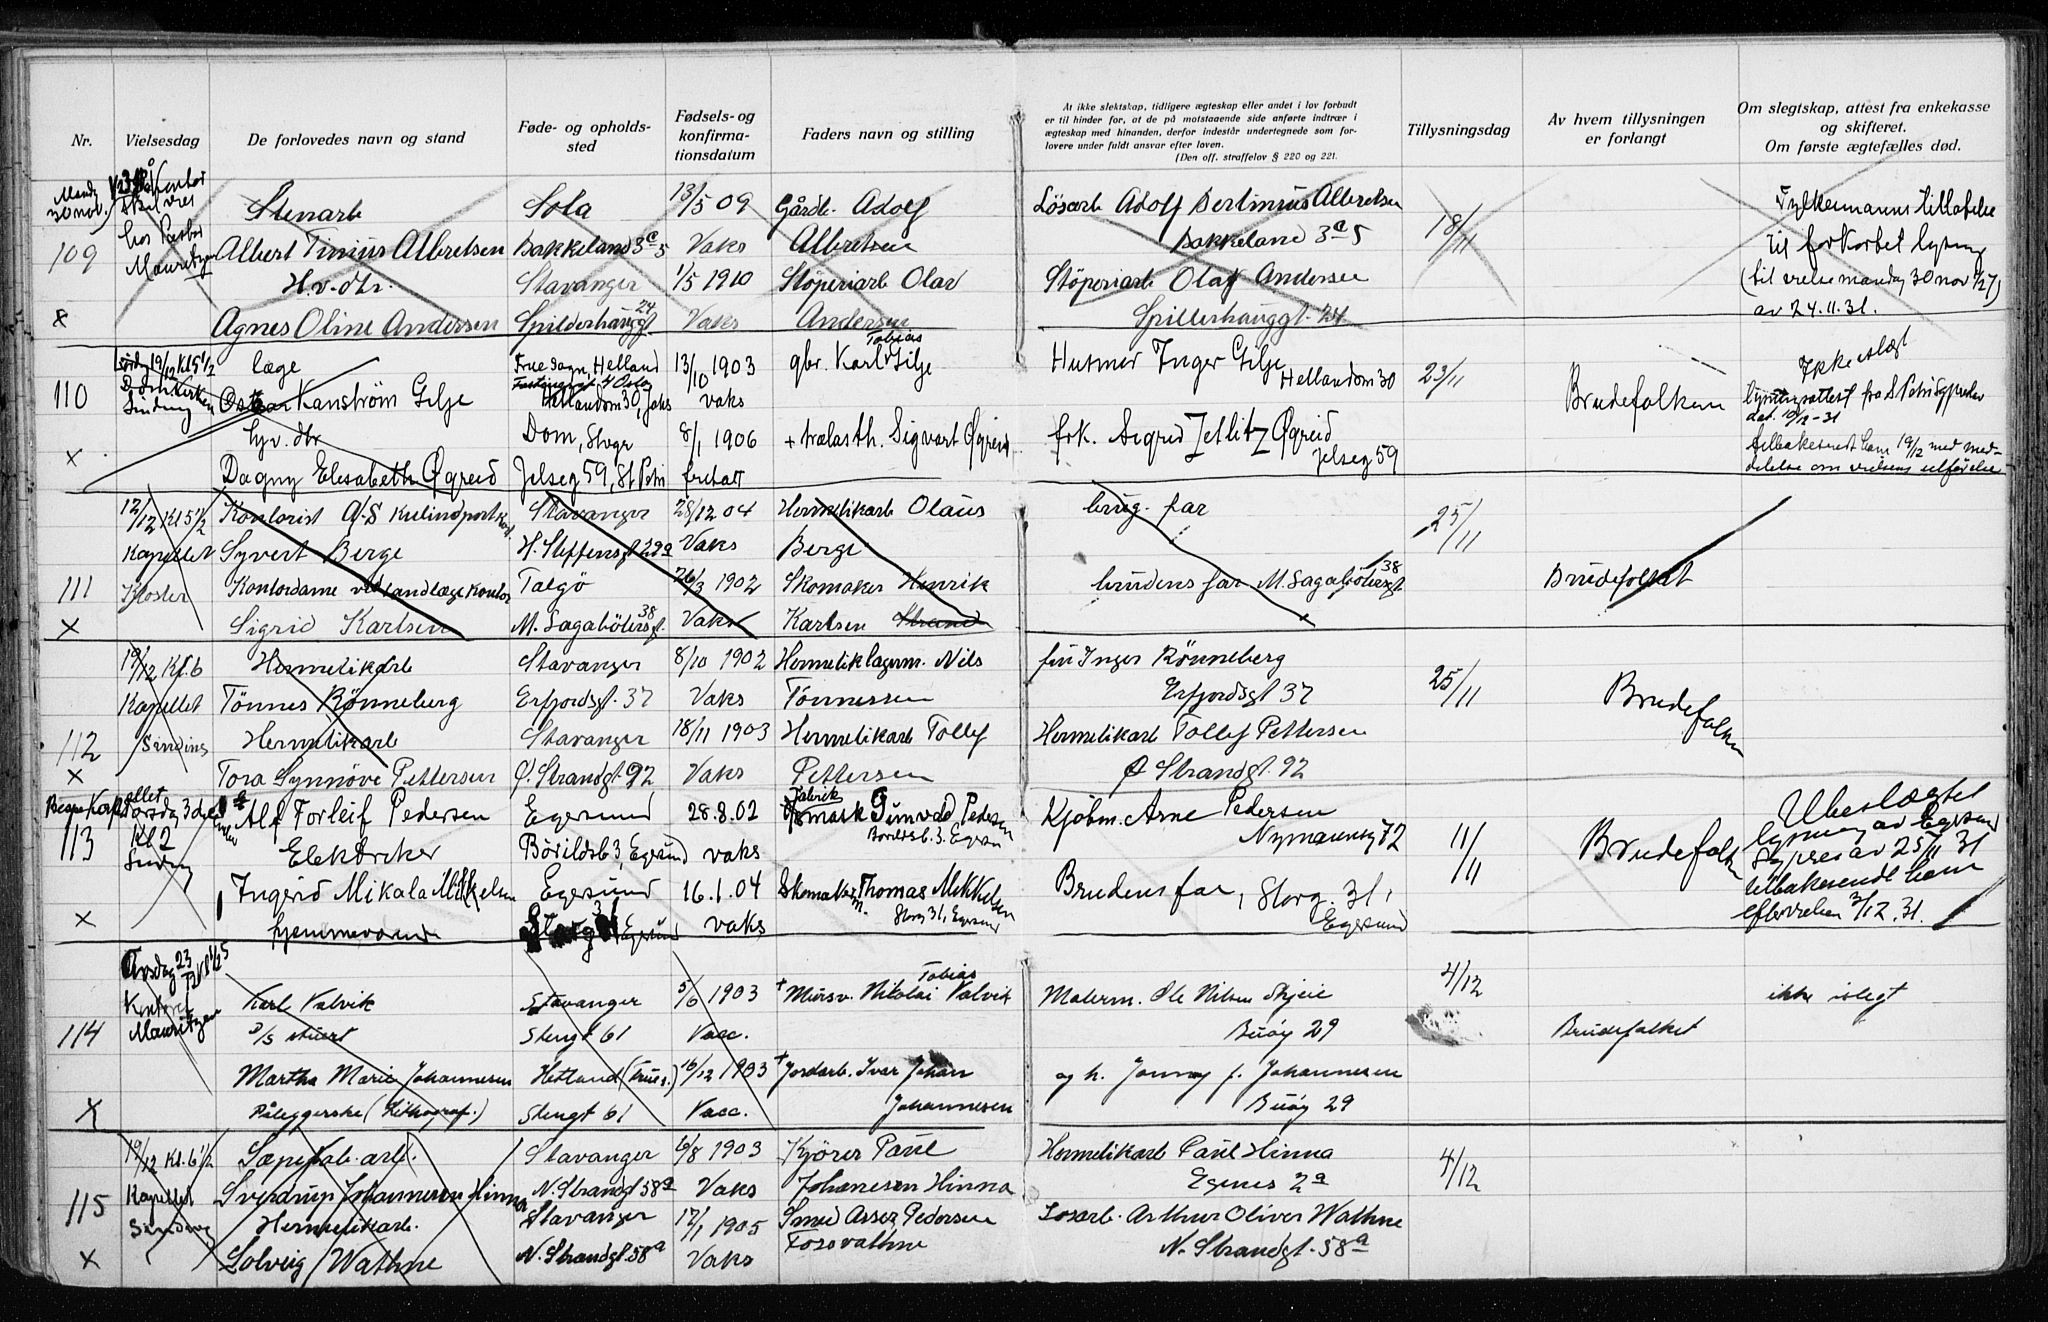 Nr.
Vielsesdag
De forlovedes navn og stand
Føde- og opholds-
sted
Fødsels- og
konfirma-
tionsdatum
Faders navn og stilling
At ikke slektskap, tidligere ægteskap eller andet i lov forbudt
er til hinder for, at de på motstaaende side anførte indtrær i
ægteskap med hinanden, derfor indestår undertegnede som for-
lovere under fuldt ansvar efter loven.
(Den off. straffelov § 220 og 221.
Tillysningsdag
Av hvem tillysningen
er forlangt
Om slegtskap, attest fra enkekasse
og skifteret.
Om første ægtefælles død.
Mandag
30 nov.
hos Pastor
Mauritzen
109
Stenarb Sola 13/5 09 Gårdb. Adolf Løsarb Adolf Bertinius Albretsen 18/11 Fylkesmanns tillatelse
Albert Tinius Albretsen Bakkeland 3c 5 Vaks Albretsen Bakkeland 3c 5 til forkortet lysning
H.v. dtr. Stavanger 1/5 1910 Støperiarb Olav Støperiarb Olaf Andersen (til vielse mandag 30 nov
8 Agnes Oline Andersen Spilderhauggt 24 Vaks Andersen Spillerhauggt. 24 av 24.11.31.
Lørdag 19/12 Kl 5 1/2
Domkirken
Sinding
110
læge Fruesogn, Helland 13/10 1903 gbr. Karl Tobias Gilje Hutmer Inger Gilje 23/11 Ikke slegt
Oskar Kanstrøm Gilje Hellandsm 30, vaks Hellandsm 30 Brudefolken lysningsattest fra St Petri Sgpr
hv. dtr Dom, Stvgr 8/1 1906 + trælasth. Sigvart Øgreid frk. Sigrid Jetlitz Øgreid tilbakesendt ham 19/12 med med-
x Dagny Elisabeth Øgreid Jelseg 59, St Petri fritatt Jelseg 59 delelse om vielsens utførelse
12/12 Kl 5 1/2 Kontorist A/S Stavanger 28/12 04 Hermetikarb Olaus brug. far 25/11
Kapellet Syvert Berge H. Steffensgt 29a Vaks Berge
111 Kloster Kontordame ved landlægekontor Talgö 26/3 1902 Skomaker Henrik brudens far M. Sagabötersgt 38 Brudefolket
x Sigrid Karlsen M. Sagabötersgt. 38 Vaks Karlsen Strand
19/12 Kl. 6 Hermetikarb Stavanger 8/10 1902 Hermetiklagerm. Nils fru Inger Rönneberg 25/11
Kapellet Tönnes Rönneberg Erfjordsgt. 37 Vaks Tönnessen Erfjordsgt 37 Brudefolken
112 Sinding Hermetikarb Stavanger 18/11 1903 Hermetikarb Tollef Hermetikarb Tollef Pettersen
x Tora Synnöve Pettersen Ø. Strandgt. 92 Vaks Pettersen Ø Strandgt. 92
113 Torsdag 3 des
Kl 2
Sinding
Alf Forleif Pedersen Egersund 28.8.02 Fabrik Gunvald Pedersen Kjøbm. Arne Pedersen 11/11 Ubeslægtet
Elektriker Bövildsb 3, Egersund vaks Bövildsb. 3. Egersun Nymannsg 72 Brudefolken lysning av Egersund
Sgpres av 25/11 31
Ingerid Mikala Mikkelsen Egersund 16.1.04 Skomakerm. Thomas Mikkelsen Brudens far, Storg. 31, tilbakesendt ham
x hjemmevaande Storg 31 Egersund vaks Storg 31, Egersund Egersund eftervielsen 3/12.31.
Onsdag 23/12 Kl 1/2 5
Kontoret
Mauritzen
114
Karl Valvik Stavanger 5/6 1903 + Mursv. Nikolai Tobias Valvik Malerm. Ole Nilsen Skjeie 4/12 ikke i slegt
D/S stuert Stengt 61 Vacc. Buöy 29 Brudefolket
Martha Marie Johannesen Hetland (Frues.) 16/12 1903 + Jordarb. Ivar Johan og h. Jonny f. Johannesen
x Påleggerske (Lithograf.) Stengt 61 Vacc. Johannesen Buöy 29
19/12 Kl. 6 1/2 Sæpefab. arb. Stavanger 6/8 1903 Kjörer Paul Hermetikarb Paul Hinna 4/12
115 Kapellet Sverdrup Johannesen Hinna N. Strandgt 58a Vaks Johanesen Hinna Egenes 2a
Sinding Hermetikarb. Stavanger 17/1 1905 Smed Asser Pedersen Losarb. Arthur Oliver Wathne
x Solveig Wathne N. Strandgt. 58a Vaks Fossvathne N. Strandgt. 58a